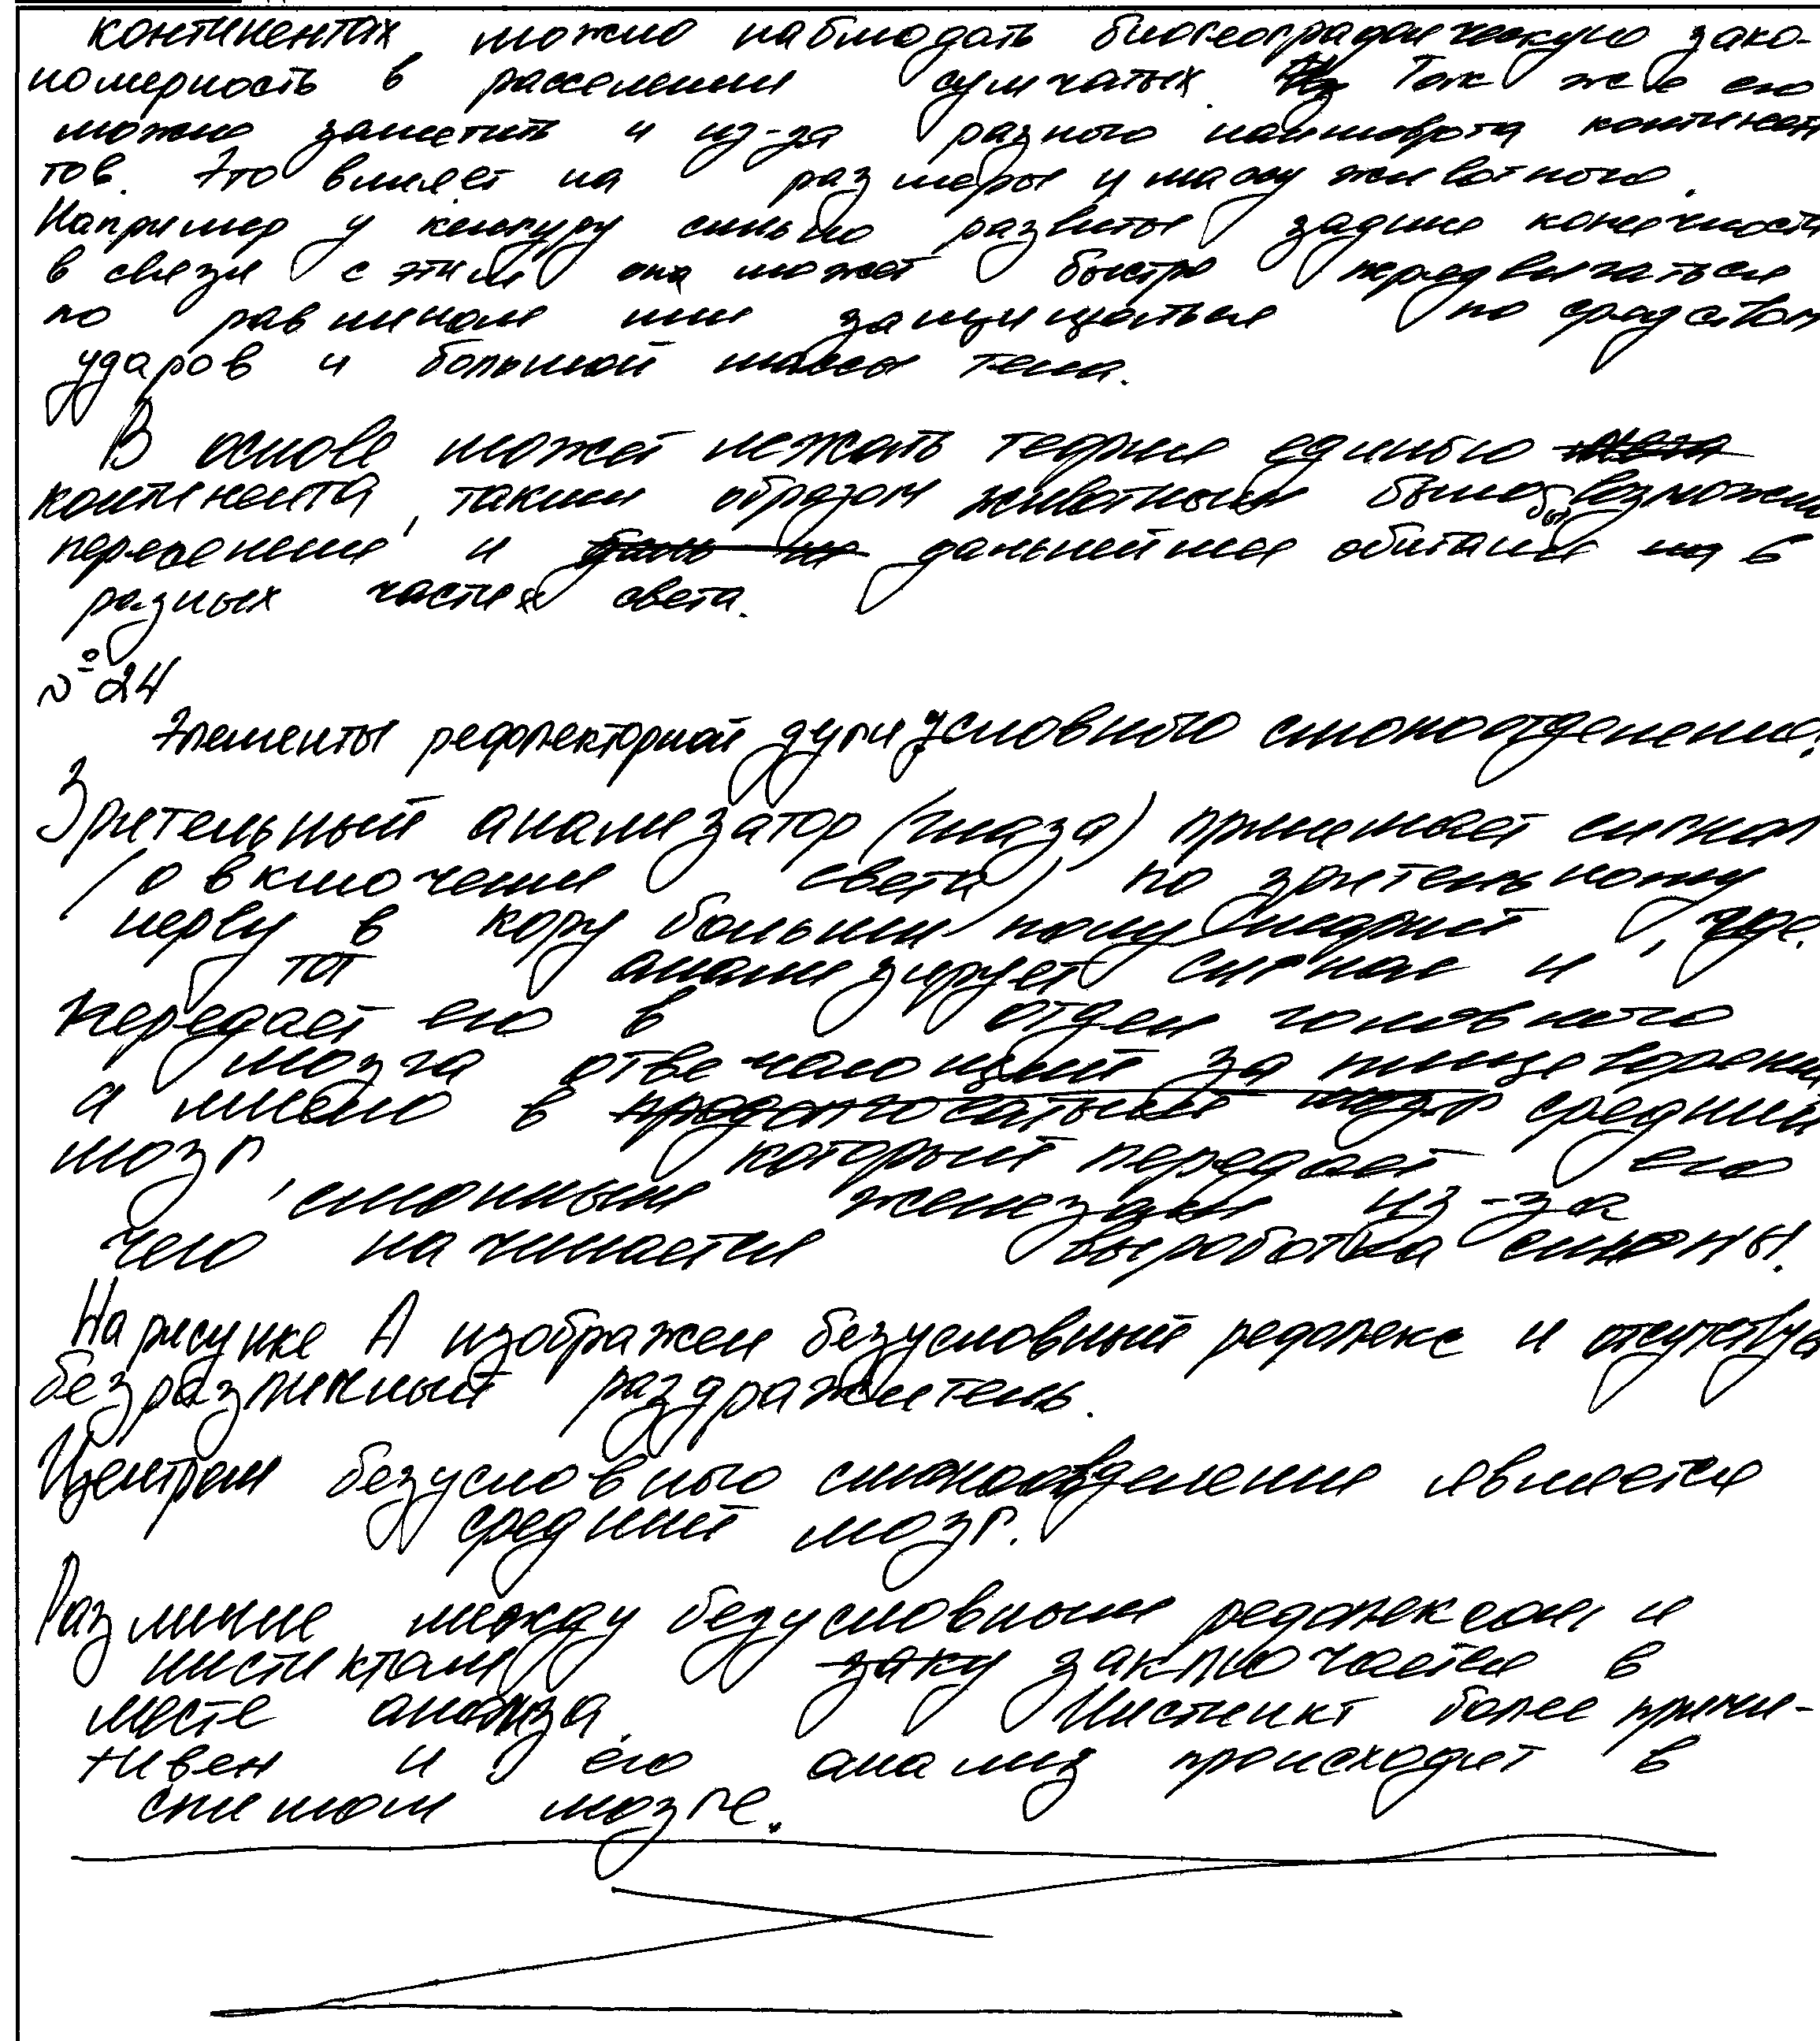 континентах, можно наблюдать биогеографическую зако-
номерность в расселении сумчатых. Так же его
можно заметить и из-за разного ландшафта континен
тов. Это влияет на размеры и массу животного.
Например у кенгуру сильно развиты задние конечности
в связи с этим она может быстро передвигаться
по равнинам или защищаться по средством
ударов и большой массы тела.
В основе может лежать теория единого
континента, таким образом животным было бы возможен
переселение и дальнейшее обитание в
разных частях света.
№24
Элементы рефлекторной дуги условного слюноотделения:
Зрительный анализатор (глаза) принимает сигнал
(о включении света) по зрительному
нерву в кору больших полушарий, где
тот анализирует сигнал и
передает его в отдел головного
мозга отвечающий за пищеварени
а имено в средний
мозг который передает его
, слюнным железам из-за
чего начинается выработка слюны.
На рисунке А изображен безусловный рефлекс и отсутствует
безразличный раздражитель.
Центром безусловного слюноотделения является
средний мозг.
Различие между безусловным рефлексом и
инстиктом заключается в
месте анализа. Инстинкт более прими-
тивен и его анализ происходит в
спинном мозге.